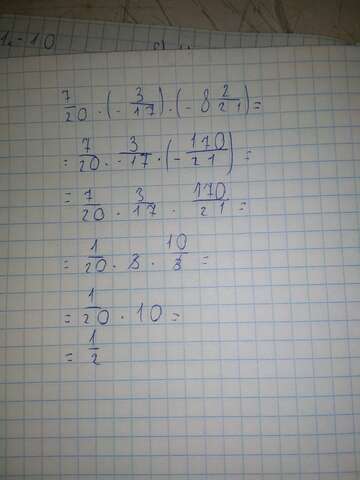 1. - 10
7/20 · (- 3/17) · (- 8 2/21) =
= 7/20 · - 3/17 · (- 170/21) =
= 7/20 · 3/17 · 170/21 =
= 1/20 · 3 · 10/3 =
= 1/20 · 10 =
= 1/2